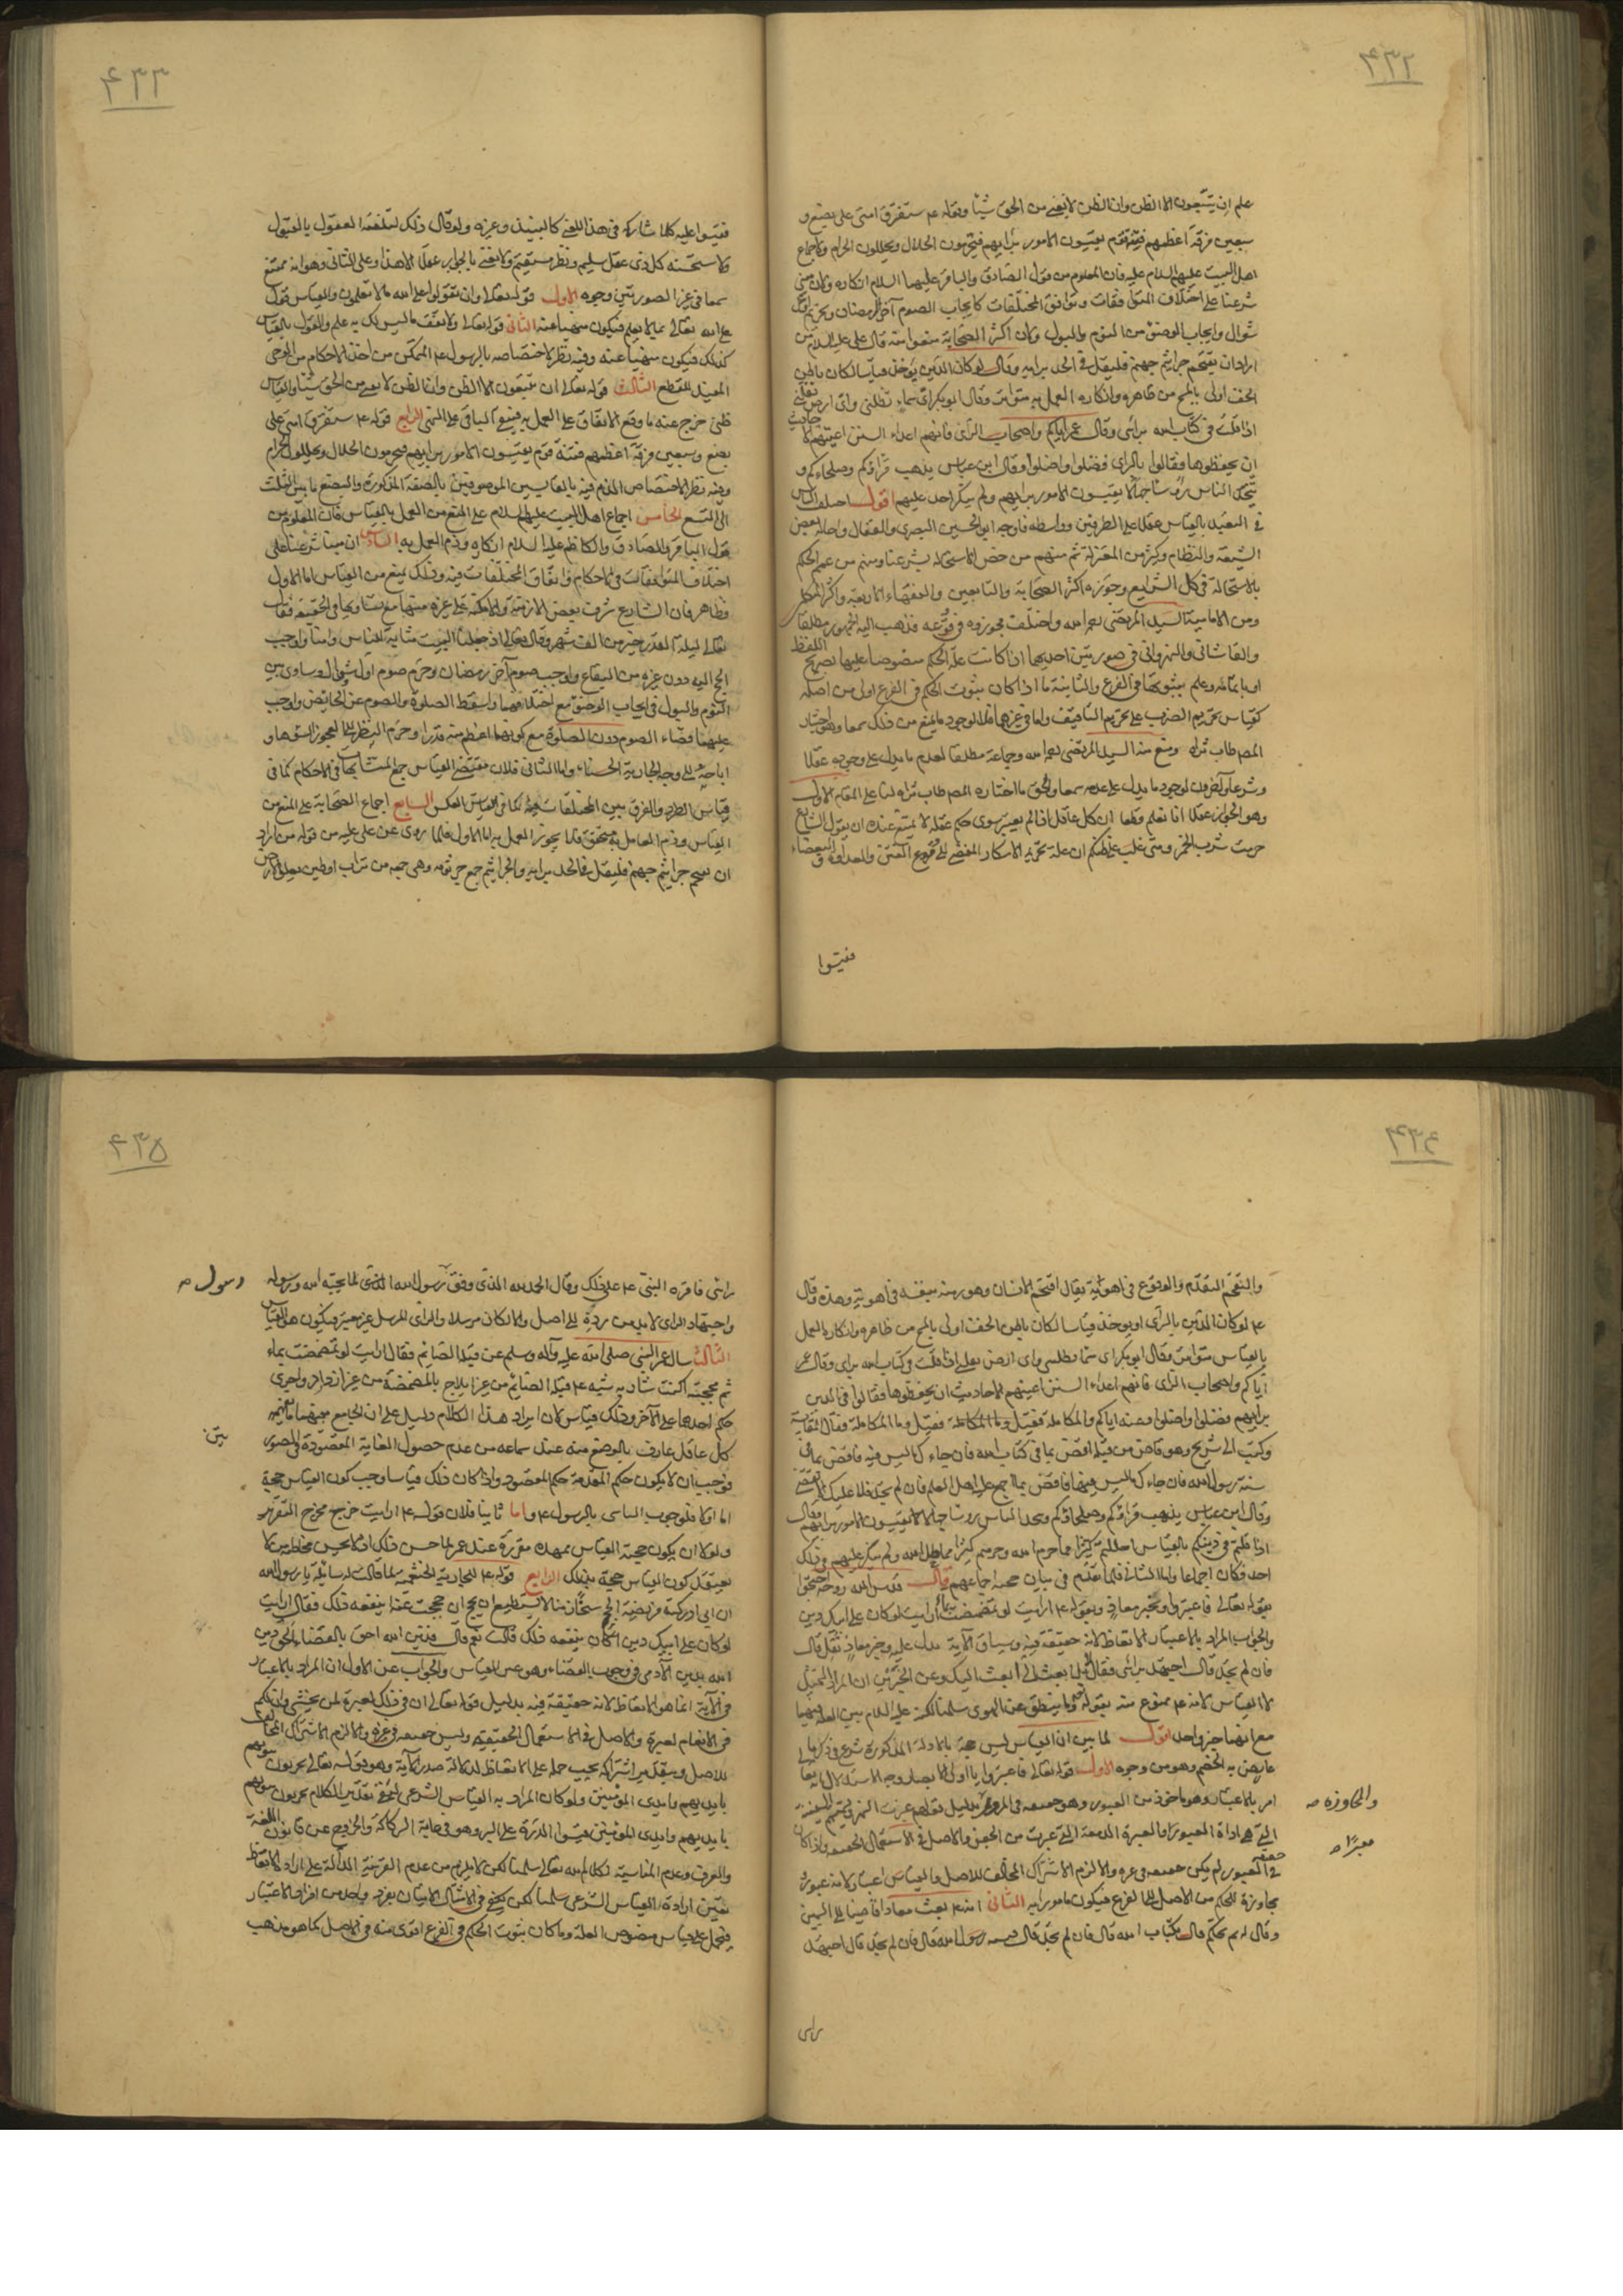 ٤٣٢
علم ان يتبعون الا الظن وان الظن لا يغنى من الحق شيئا وبقوله ع ستفترق امتى على بضع و
سبعين فرقة اعظمهم فتنة قوم يقيسون الامور برأيهم فيحرمون الحلال ويحللون الحرام ولاجماع
اهل البيت عليهم السلام عليه فان المعلوم من قول الصادق والباقر عليهما السلام انكاره ولان مبنى
شرعنا على اختلاف المتوافقات وتوافق المختلفات كايجاب الصوم آخر رمضان وتحريم اول
شوال وايجاب الوضوء من النوم والبول ولان اكثر الصحابة منعوا منه قال على عليه السلام من
اراد ان يتقحم جراثيم جهنم فليقل فى الجد برايه وقال لو كان الدين يؤخذ قياسا لكان باطن
الخف اولى بالمسح من ظاهره وانكاره العمل به متواتر وقال ابو بكر اى سماء تظلنى واى ارض تقلنى
اذا قلت فى كتاب الله برأى وقال عمر اياكم واصحاب الراى فانهم اعداء السنن اعيتهم الاحاديث
ان يحفظوها فقالوا بالراى فضلوا واضلوا وقال ابن عباس يذهب قراؤكم وصلحاءكم و
يتخذ الناس رؤساء جهالا يقيسون الامور برايهم ولم ينكر احد عليهم اقول اختلف الناس
فى التعبد بالقياس عقلا على الطرفين وواسطة فاوجبه ابو الحسين البصرى والقفال واحاله بعض
الشيعة والنظام وكثير من المعتزلة ثم منهم من خص الاستحالة بشرعنا ومنهم من عمم الحكم
بالاستحالة فى كل الشرايع وجوزه اكثر الصحابة والتابعين والفقهاء الاربعة واكثر المتكلمين
ومن الامامية السيد المرتضى رحمه الله واختلف مجوزوه فى وقوعه فذهب اليه الجمهور مطلقا
والقاشانى والنهروانى فى صورتين احديهما اذا كانت علة الحكم منصوصا عليها بصريح اللفظ
او بايمائه وعلم بثبوتها فى الفرع والثانية ما اذا كان ثبوت الحكم فى الفرع اولى من اصله
كقياس تحريم الضرب على تحريم التأفيف واما فى غيرهما فلا لوجود ما يمنع من ذلك سمعا وهو اختيار
المص طاب ثراه ومنع منه السيد المرتضى رحمه الله وجماعة مطلقا لعدم ما يدل على وجوده عقلا
وشرعا وآخرون لوجود ما يدل على عدمه سمعا والحق ما اختاره المص طاب ثراه لنا على المقام الاول
وهو الجواز عقلا انا نعلم قطعا ان كل عاقل اذا لم يعتبر سوى حكم عقله لا يمتنع عنده ان يقول الشارع
حرمت شرب الخمر ومتى غلب على ظنكم ان علة تحريمه الاسكار المفضى الى وقوع الفتن والعداوة والبغضاء
فقيسوا
٤٣٣
فقيسوا عليه كلما شاركه فى هذا المعنى كالنبيذ وغيره ولو قال ذلك لتلقته العقول بالقبول
ولاستحسنه كل ذى عقل سليم ونظر مستقيم ولا نعنى بالجواز عقلا الا هذا وعلى الثانى وهو انه ممتنع
سمعا فى غير الصورتين وجوه الاول قوله تعالى وان تقولوا على الله ما لا تعلمون والقياس قول
على الله تعالى بما لا يعلم فيكون منهيا عنه الثانى قوله تعالى ولا تقف ما ليس لك به علم والقول بالقياس
كذلك فيكون منهيا عنه وفيه نظر لاختصاصه بالرسول ع المتمكن من اخذ الاحكام من الوحى
المفيد للقطع الثالث قوله تعالى ان يتبعون الا الظن وان الظن لا يغنى من الحق شيئا والقياس
ظنى خرج عنه ما وقع الاتفاق على العمل به فيبقى الباقى على النهى الرابع قوله ع ستفترق امتى على
بضع وسبعين فرقة اعظمهم فتنة قوم يقيسون الامور برايهم فيحرمون الحلال ويحللون الحرام
وفيه نظر لاختصاص الذم فيه بالقايسين الموصوفين بالصفة المذكورة والبضع ما بين الثلث
الى التسع الخامس اجماع اهل البيت عليهم السلام على المنع من العمل بالقياس فان المعلوم من
قول الباقر والصادق والكاظم عليه السلام انكاره وذم العمل به السادس ان مبنا شرعنا على
اختلاف المتوافقات فى الاحكام واتفاق المختلفات فيه وذلك يمنع من القياس اما الاول
فظاهر فان الشارع شرف بعض الازمنة والامكنة على غيره منها مع تساويها فى الحقيقة فقال
تعالى ليلة القدر خير من الف شهر وقال تعالى اذ جعلنا البيت مثابة للناس وامنا واوجب
الحج اليه دون غيره من البقاع واوجب صوم آخر رمضان وحرم صوم اول شوال وساوى بين
النوم والبول فى ايجاب الوضوء مع اختلافهما واسقط الصلوة والصوم عن الحايض واوجب
عليها قضاء الصوم دون الصلوة مع كونها اعظم منه قدرا وحرم النظر الى العجوز الشوهاء و
اباحه الى وجه الجارية الحسناء واما الثانى فلان مقتضى القياس جمع المتشابهات فى الاحكام كما فى
قياس الطرد والفرق بين المختلفات فيه كما فى قياس العكس السابع اجماع الصحابة على المنع من
القياس وذم العامل به متحقق فلا يجوز العمل به اما الاول فلما روى عن على عليه من قوله من اراد
ان يتقحم جراثيم جهنم فليقل فى الجد برايه والجراثيم جمع جرثومة وهى جمعه من تراب او طين يعلو الارض
٤٣٤
والتقحم التقدم والوقوع فى اهوية يقال اقتحم الانسان وهو رميه بنفسه فى اهوية وهدة وقال
ع لو كان الدين بالرأى او يؤخذ قياسا لكان باطن الخف اولى بالمسح من ظاهره وانكاره العمل
بالقياس متواتر وقال ابو بكر اى سماء تظلنى واى ارض تقلنى اذا قلت فى كتاب الله براى وقال عمر
اياكم واصحاب الراى فانهم اعداء السنن اعيتهم الاحاديث ان يحفظوها فقالوا فى الدين
برايهم فضلوا واضلوا وعنه اياكم والمكايلة فقيل وما المكايلة فقال المقايسة
وكتب الى شريح وهو قاض من قبله اقض بما فى كتاب الله فان جاءك ما ليس فيه فاقض بما فى
سنة رسول الله فان جاءك ما ليس فيها فاقض بما اجمع عليه اهل العلم فان لم تجد فلا عليك ان لا تقضى
وقال ابن عباس يذهب قراؤكم وصلحاؤكم ويتخذ الناس رؤساء جهالا يقيسون الامور برايهم وقال
اذا قلتم فى دينكم بالقياس احللتم كثيرا مما حرم الله وحرمتم كثيرا مما احل الله ولم ينكر عليهم فى ذلك
احد فكان اجماعا واما الثانى فلما تقدم فى بيان حجية اجماعهم قال قدس الله روحه احتجوا
بقوله تعالى فاعتبروا وبخبر معاذ وبقوله ع ارايت لو تمضمضت بماء ارايت لو كان على ابيك دين
والجواب المراد بالاعتبار الاتعاظ لانه حقيقة فيه وسياق الآية يدل عليه وخبر معاذ نقل قال
فان لم تجد قال اجتهد برائى فقال لا بعث الى ابعث اليك وعن الخبرين ان المراد التمثيل
لا القياس لانه ع ممنوع منه بقوله وما ينطق عن الهوى سلمنا لكنه عليه السلام بين العلة فيهما
مع انهما خبر واحد اقول لما بين ان القياس ليس حجة بالادلة المذكورة شرع فى ذكر ما
عارض به الخصم وهو من وجوه الاول قوله تعالى فاعتبروا يا اولى الابصار وجه الاستدلال انه تعالى
امر بالاعتبار وهو ماخوذ من العبور وهو حقيقة فى المرور بدليل قولهم عبرت النهر وتسمى السفينة
التى هى اداة العبور والعبرة الدمعة التى عبرت من الجفن والاصل فى الاستعمال الحقيقة واذا كان حقيقة
فى العبور لم يكن حقيقة فى غيره والا لزم الاشتراك المخالف للاصل والقياس اعتبار لانه عبور و
مجاوزة للحكم من الاصل الى الفرع فيكون مامورا به الثانى انه ع بعث معاذا قاضيا الى اليمن
وقال له بم تحكم قال بكتاب الله قال فان لم تجد قال بسنة رسول الله قال فان لم تجد قال اجتهد
والمجاوزة صح
معبرا صح
رايى
٤٣٥
رائى فاقره النبى ع على ذلك وقال الحمد لله الذى وفق رسول رسول الله لما يحبه الله ورسوله
واجتهاد الراى لا بد من رده الى اصل والا لكان مرسلا والراى المرسل غير معتبر فيكون هو القياس
الثالث سال عمر النبى صلى الله عليه وآله وسلم عن قبلة الصائم فقال ارايت لو تمضمضت بماء
ثم مججته اكنت شاربه شبه ع قبلة الصائم من غير ايلاج بالمضمضة من غير ازدراد واجرى
حكم احدهما على الآخر وذلك قياس لان ايراد هذا الكلام دليل على ان الجامع بينهما ما يفهمه
كل عاقل عارف بالوضع منه عند سماعه من عدم حصول الغاية المقصودة فى الصورتين
فوجب ان لا يكون حكم المقدمة حكم المقصود واذا كان ذلك قياسا وجب كون القياس حجة
اما اولا فلوجوب التاسى بالرسول ع واما ثانيا فلان قوله ع ارايت خرج مخرج التقرير
ولولا ان يكون حجية القياس ممهدة مقررة عند عمر لما حسن ذلك اذ لا يحسن مخاطبة من لا
يعتقد كون القياس حجة بذلك الرابع قوله ع للجارية الخثعمية لما قالت له سائلة يا رسول الله
ان ابى ادركته فريضة الحج شيخا زمنا لا يستطيع ان يحج ان حججت عنه اينفعه ذلك فقال ارايت
لو كان على ابيك دين اكان ينفعه ذلك قالت نعم قال فدين الله احق بالقضاء الحق دين
الله بدين الآدمى فى وجوب القضاء وهو عين القياس والجواب عن الاول ان المراد بالاعتبار
فى الآية انما هو الاتعاظ لانه حقيقة فيه بدليل قوله تعالى ان فى ذلك لعبرة لمن يخشى وان لكم
فى الانعام لعبرة والاصل فى الاستعمال الحقيقة وليس حقيقة فى غيره والا لزم الاشتراك المخالف
للاصل وبتقدير اشتراكه يجب حمله على الاتعاظ لدلالة صدر الآية وهو قوله تعالى يخربون بيوتهم
بايديهم وايدى المؤمنين ولو كان المراد به القياس الشرعى لصار تقدير الكلام يخربون بيوتهم
بايديهم وايدى المؤمنين فقيسوا الذرة على البر وهو فى غاية الركاكة والخروج عن قانون اللغة
والعرف وعدم المناسبة لكلامه تعالى سلمنا لكن لا يلزم من عدم القرينة الدالة على ارادة الاتعاظ
تعين ارادة القياس الشرعى سلمنا لكن يكفى فى الامتثال الاتيان بفرد واحد من افراد الاعتبار
فيحمل على قياس منصوص العلة وما كان ثبوت الحكم فى الفرع اقوى منه فى الاصل كما هو مذهب
رسول صح
بين